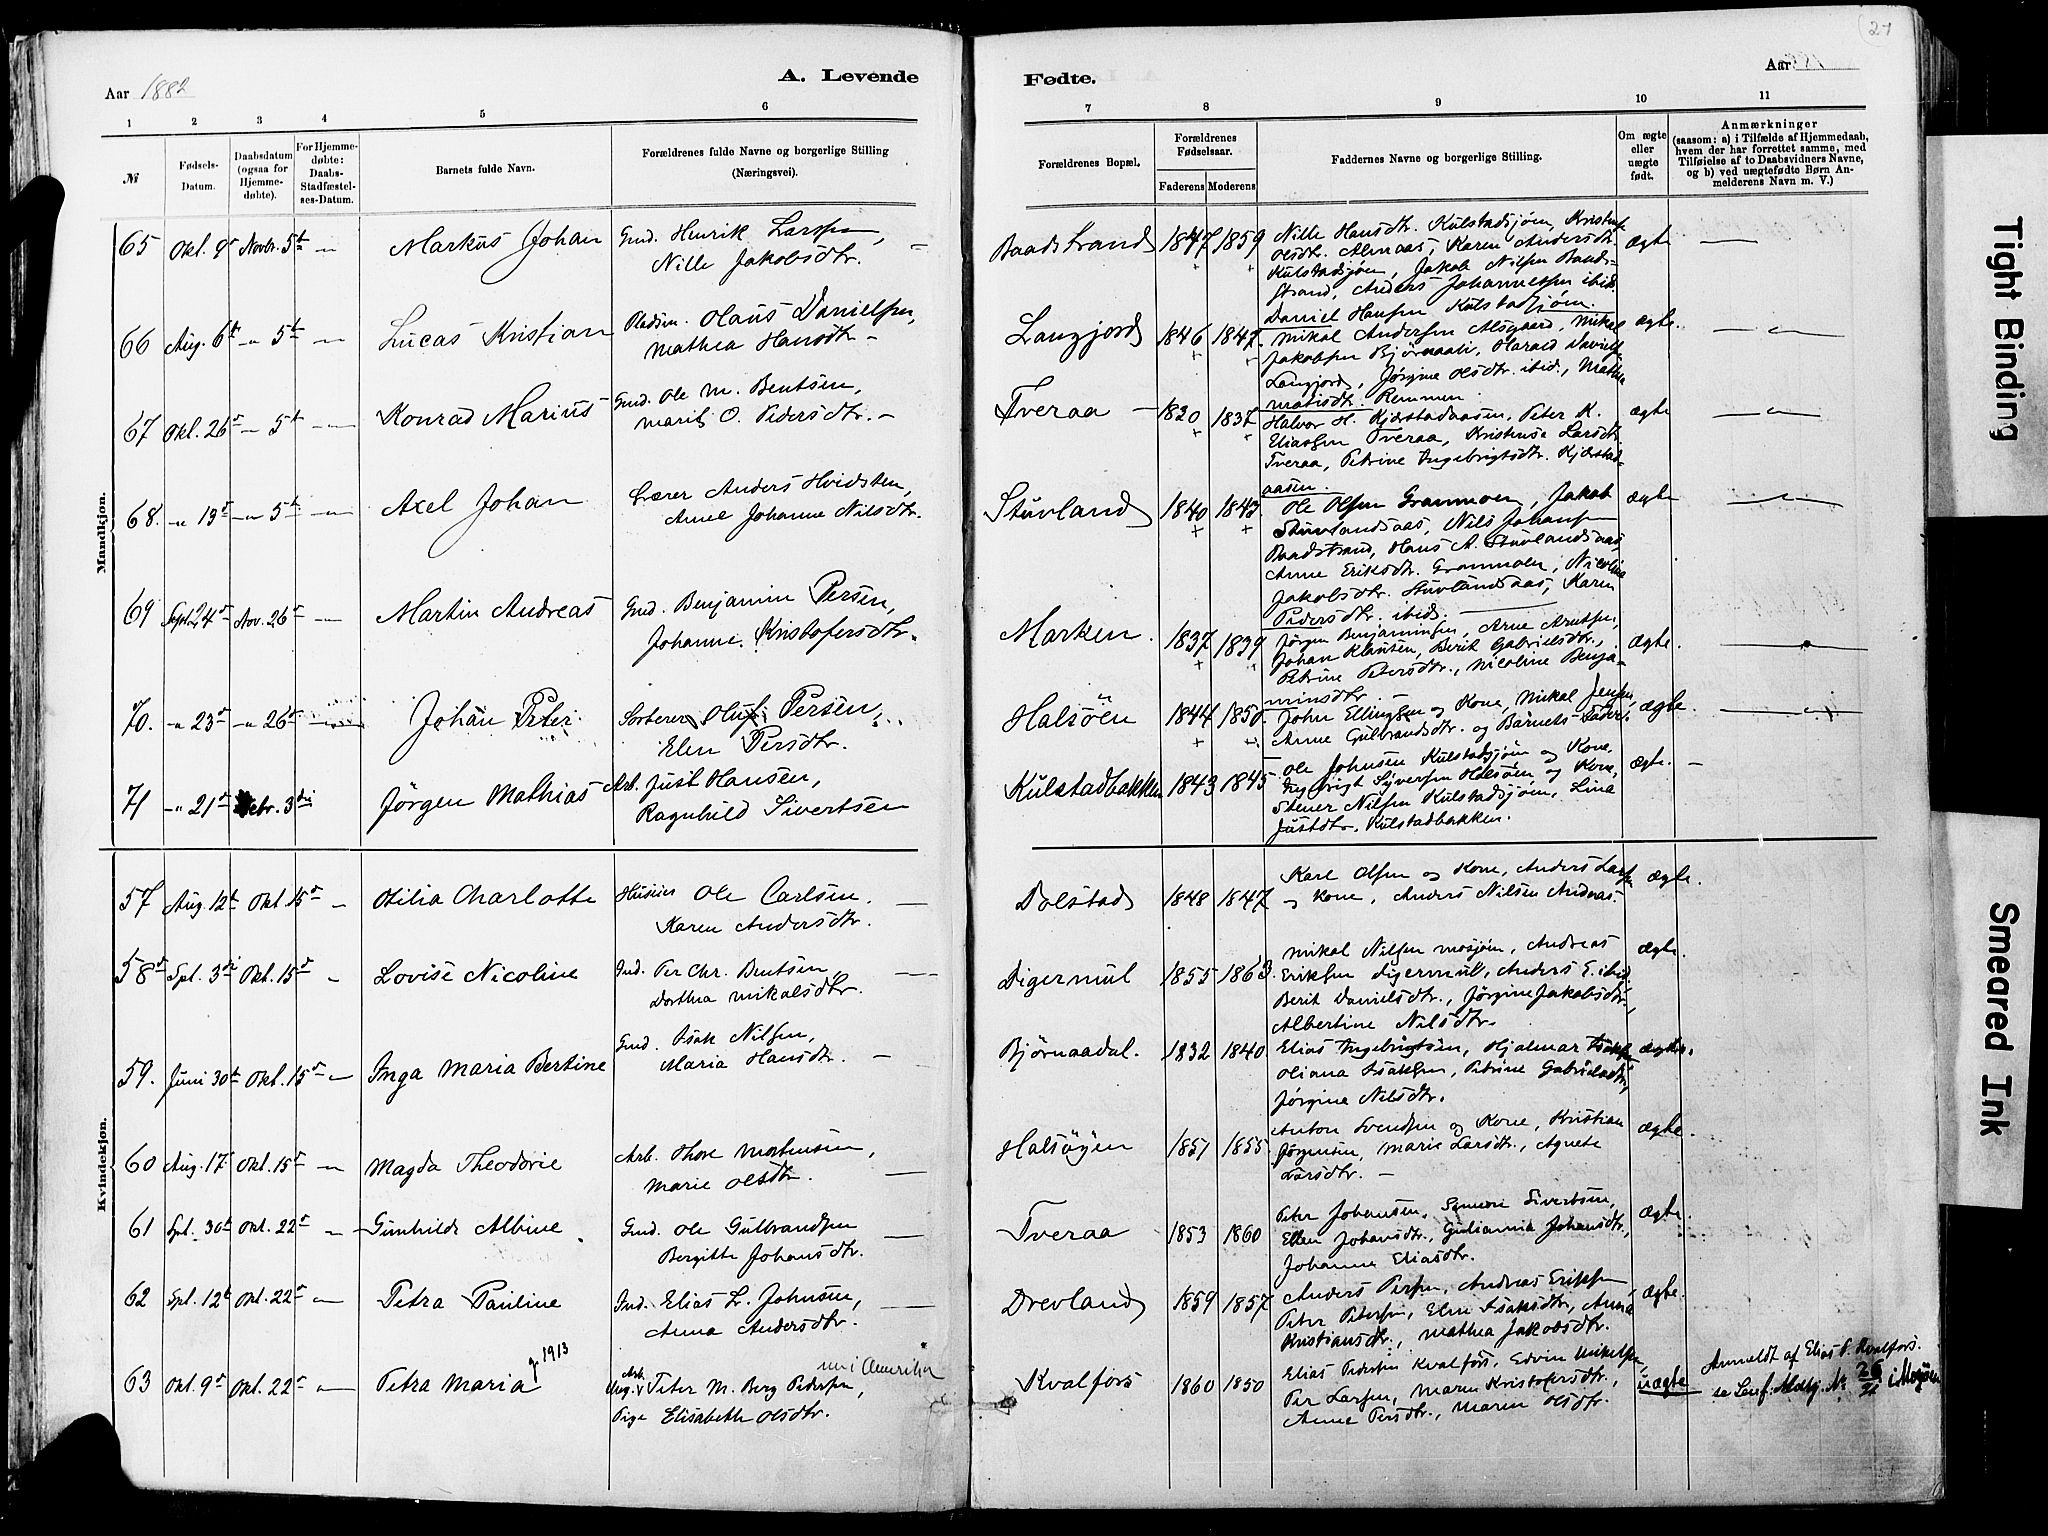 27
Aar 1882
A. Levende
Fødte.
Aar
1 2 3 4 5 6
7 8 9 10 11
№
Fødsels-
Datum.
Daabsdatum
(ogsaa for
Hjemme-
døbte).
For Hjemme-
døbte:
Daabs-
Stadfæstel-
ses-Datum.
Barnets fulde Navn.
Forældrenes fulde Navne og borgerlige Stilling
(Næringsvei).
Forældrenes Bopæl.
Forældrenes
Fødselsaar.
Faderens Moderens
Faddernes Navne og borgerlige Stilling.
Om ægte
eller
uægte
født.
Anmærkninger
(saasom: a) i Tilfælde af Hjemmedaab,
hvem der har forrettet samme, med
Tilføielse af to Daabsvidners Navne,
og b) ved uægtefødte Børn An-
melderens Navn m. V.)
Mandkjøn.
65 Okt. 9d Novbr. 5te Markus Johan Gmd. Henrik Larssen,
Nille Jakobsdtr.
Baadstrand 1847 1859 ægte
Nille Hansdtr. Kulstadsjøen, Kristense
Olsdtr. Almaas, Karen Andersdtr.
Kulstadsjøen, Jakob Nilsen Baad-
strand, Anders Johannessen ibid.
Daniel Hansen Kulstadsjøen.
66 Aug. 6te - 5te Lucas Kristian Pladsm. Hans Danielsen,
Mathea Hansdtr -
Langjord 1846 1847 ægte.
Mikal Andersen Alsgaard, Mikal
Jakobsen Bjørnaali, Harald Daniels.
Langjord, Jørgine Olsdtr. ibid., Mathea
Matisdtr. Remmen.
67 Okt. 26d - 5te Konrad Marius Gmd. Ole M. Bentsen,
Marit O. Pedersdtr. -
Tveraa - 1820 1837 ægte
Halvor H. Kjærstadaasen, Peter K.
Eliassen Tveraa, Kristense Larsdtr.
Tveraa, Petrine Ingebrigtsdtr. Kjærstad-
aasen.
68. - 13d - 5te Axel Johan Lærer Anders Hvidsten,
Anne Johanne Nilsdtr.
Stuvland 1840 1843 ægte
Ole Olsen Granmoen, Jakob
Stuvlandsaas, Nils Johansen
Baadstrand, Hans A. Stuvlandsaas,
Anne Eriksdtr. Granmoen, Nicoline
Jakobsdtr. Stuvlandsaas, Karen
Pedersdtr. ibid.
69 Sept. 24d Nov. 26d Martin Andreas Gmd. Benjamin Persen,
Johanne Kristofersdtr.
Marken. 1837 1839 ægte.
Jørgen Benjaminsen, Arne Arntsen,
Johan Klausen, Berit Gabrielsdtr.,
Petrine Petersdtr., Nicoline Benja-
minsdtr. -
70. - 23d - 26d Johan Peter Sorterer Oluf Persen,
Elen Persdtr.
Halsøen 1844 1850 ægte.
John Ellingsen og Kone, Mikal Jensen,
Anne Gulbrandsdtr. og Barnets Fader.
71 - 21d Debr. 3die Jørgen Mathias Arb. Just Hansen,
Ragnhild Sivertsen
Kulstadbakken 1843 1845. ægte. -
Ole Johnsen Kulstadsjøen og Kone,
Ingebrigt Syversen Halsøen og Kone,
Stener Nilsen Kulstadsjøen, Lina
Justdtr. Kulstadbakken.
Kvindekjøn.
57 Aug. 12te Okt. 15d - Otilia Charlotte Husm. Ole Carlsen.
Karen Andersdtr.
Dolstad 1848 1847 ægte.
Karl Olsen og Kone, Anders Larsen
og Kone, Anders Nilsen Andaas.
58d Spt. 3die Okt. 15d - Lovise Nicoline Ind. Per Chr. Bentsen,
Dorthea Mikalsdtr.
Digermul 1855 1863. ægte.
Mikal Nilsen Mosjøen, Andreas
Eriksen Digermul, Anders E. ibid.
Berit Danielsdtr., Jørgine Jakobsdtr.,
Albertine Nilsdtr.
59. Juni 30te Okt. 15d - Inga Maria Bertine Gmd. Isak Nilsen,
Maria Hansdtr. -
Bjørnaadal. 1832 1840 ægte.
Elias Ingebrigtsen, Hjalmar Isaksen
Oliana Isaksen, Petrine Gabrielsdtr.,
Jørgine Nilsdtr.
60 Aug. 17 Okt. 15d - Magda Theodorie Arb. Thore Mortensen,
Marie Olsdtr.
Halsøyen 1851 1855. ægte.
Anton Svendsen og Kone, Kristian
Jørgensen, Marie Larsdtr., Agnete
Larsdtr. -
61 Spt. 30te Okt. 22d - Gunhilde Albine. Gmd. Ole Gulbrandsen
Bergitte Johansdtr.
Tveraa 1853 1860 ægte.
Peter Johansen, Simeon Sivertsen,
Ellen Johansdtr., Gulianna Johansdtr.,
Johanne Eliasdtr.
62 Spt. 12te Okt. 22d - Petra Pauline Ind. Elias L. Johnsen,
Anna Andersdtr.
Drevland 1859 1857 ægte.
Anders Persen, Andreas Eriksen,
Peter Petersen, Elen Isaksdtr., Anna
Kristiansdtr., Mathea Jakobsdtr.
63 Okt. 9d Okt. 22d - Petra Maria g. 1913 Arb.
Ung. Peter M. Berg Pedersen, nu i Amerika
Pige Elisabeth Olsdtr.
Kvalfors 1860 1850 uægte
Elias Pedersen Kvalfors, Edvin Mikelsen,
Per Larsen, Maren Kristofersdtr.,
Anne Persdtr., Maren Olsdtr.
Anmeldt af Elias P. Kvalfors.
i Mosjøen
Tight Binding
Smeared Ink